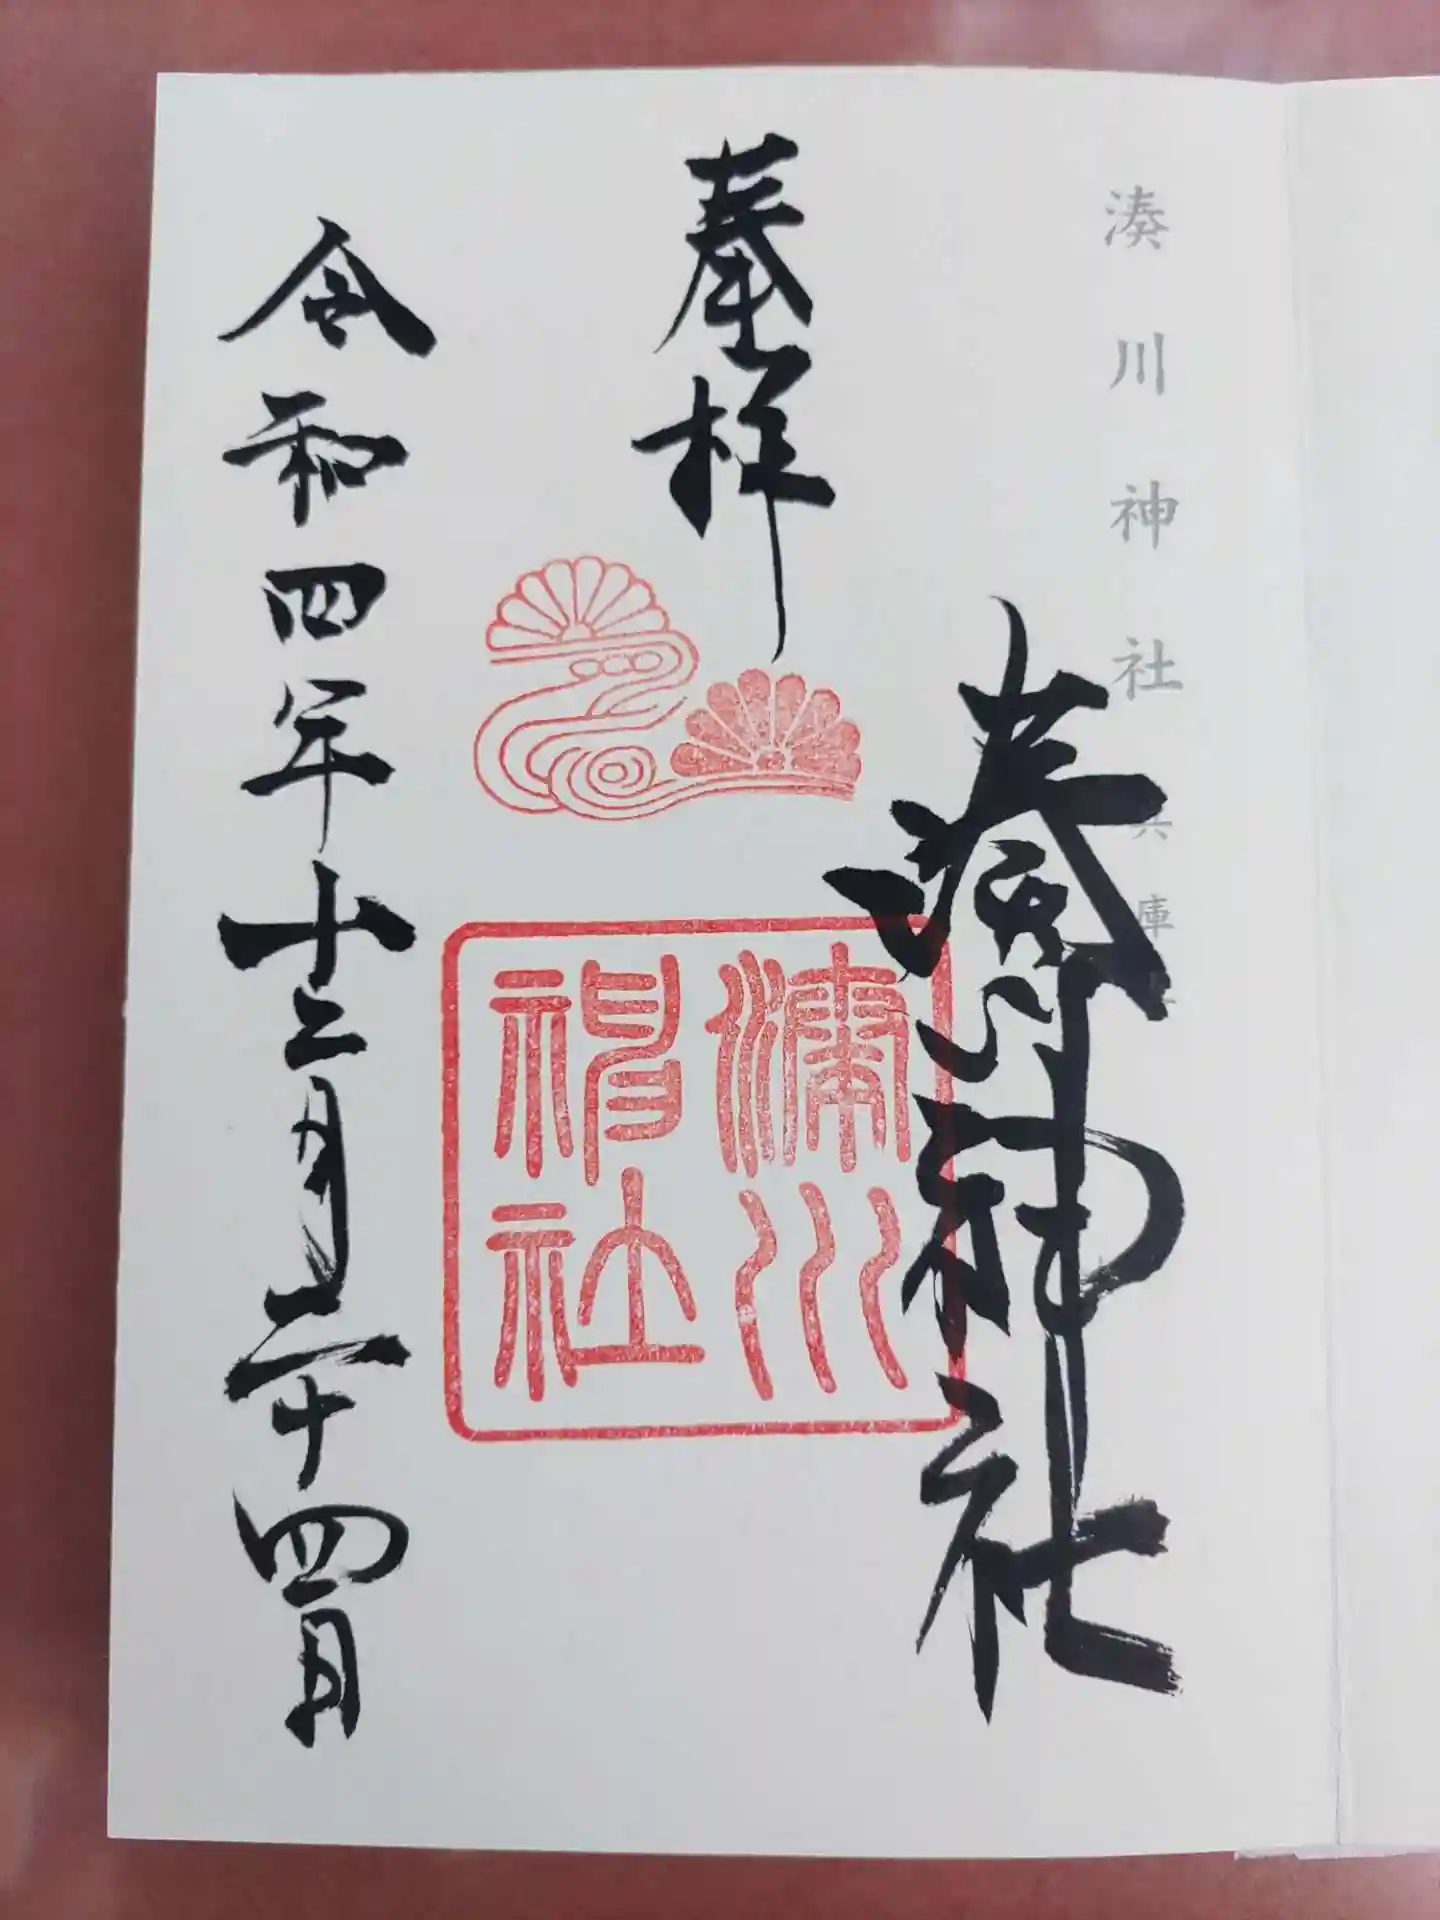 湊川神社 兵庫県
湊川神社
奉拝
湊川
神社
令和四年十二月二十四日